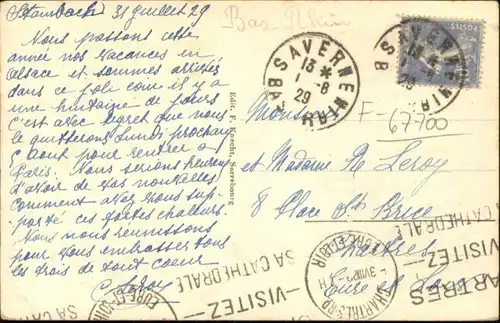 Stambach 31 Juillet 29
Nous passons cette
année nos vacances en
Alsace et sommes arrivés
dans ce joli coin il y a
une huitaine de jours
C'est avec regret que nous
le quitterons Lundi prochain
5 Aout pour rentrer à
Paris. Nous serions heureux
d'avoir de vos nouvelles
comment avez vous sup-
porté ces fortes chaleurs.
Nous nous réunissons
pour vous embrasser tous
les trois de tout coeur
C. Leroy
Edit. F. Knecht, Sarrebourg
Bas-Rhin
SAVERNE
13 *
1 - 8
29
BAS RHIN
SAVERNE
POSTES
F-67700
Monsieur
et Madame R Leroy
8 Place St Brice
Chartres
Eure et Loir
CHARTRES RP
EURE-ET-LOIR
VISITEZ
SA CATHÉDRALE
CHARTRES